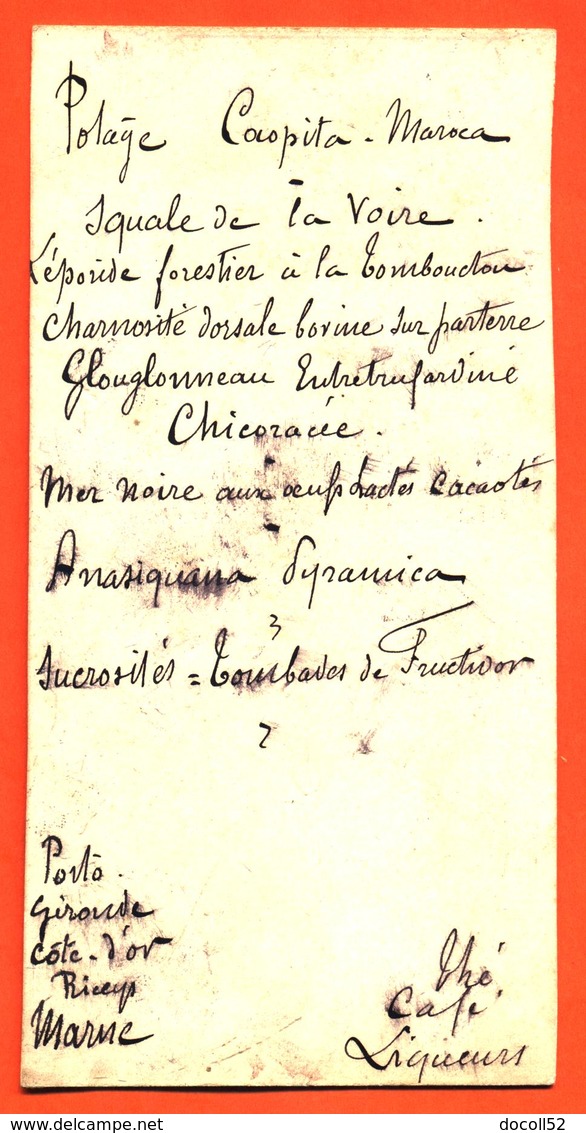 Potage Caopita - Maroca
Squale de la Voire.
Léporide forestier à la Tombouctou
Charnosité dorsale bovine sur parterre
Glouglonneau Entretrufardiné
Chicoracée.
Mer noire aux œufs lactés cacaotés
Anasiquana Pyramica
3
Sucrosités = Tombades de Fructidor
2
Porto.
Gironde
Côte-d'or
Riceys
Marne
Thé
Café
Liqueurs
docoll52